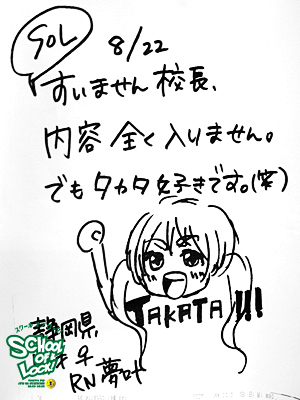 SOL 8/22
すいません校長、
内容全く入りません。
でもタカタ好きです。(笑)
TAKATA!!!
静岡県
スクール
SCHOOL
OF
LOCK!
RN 夢叶